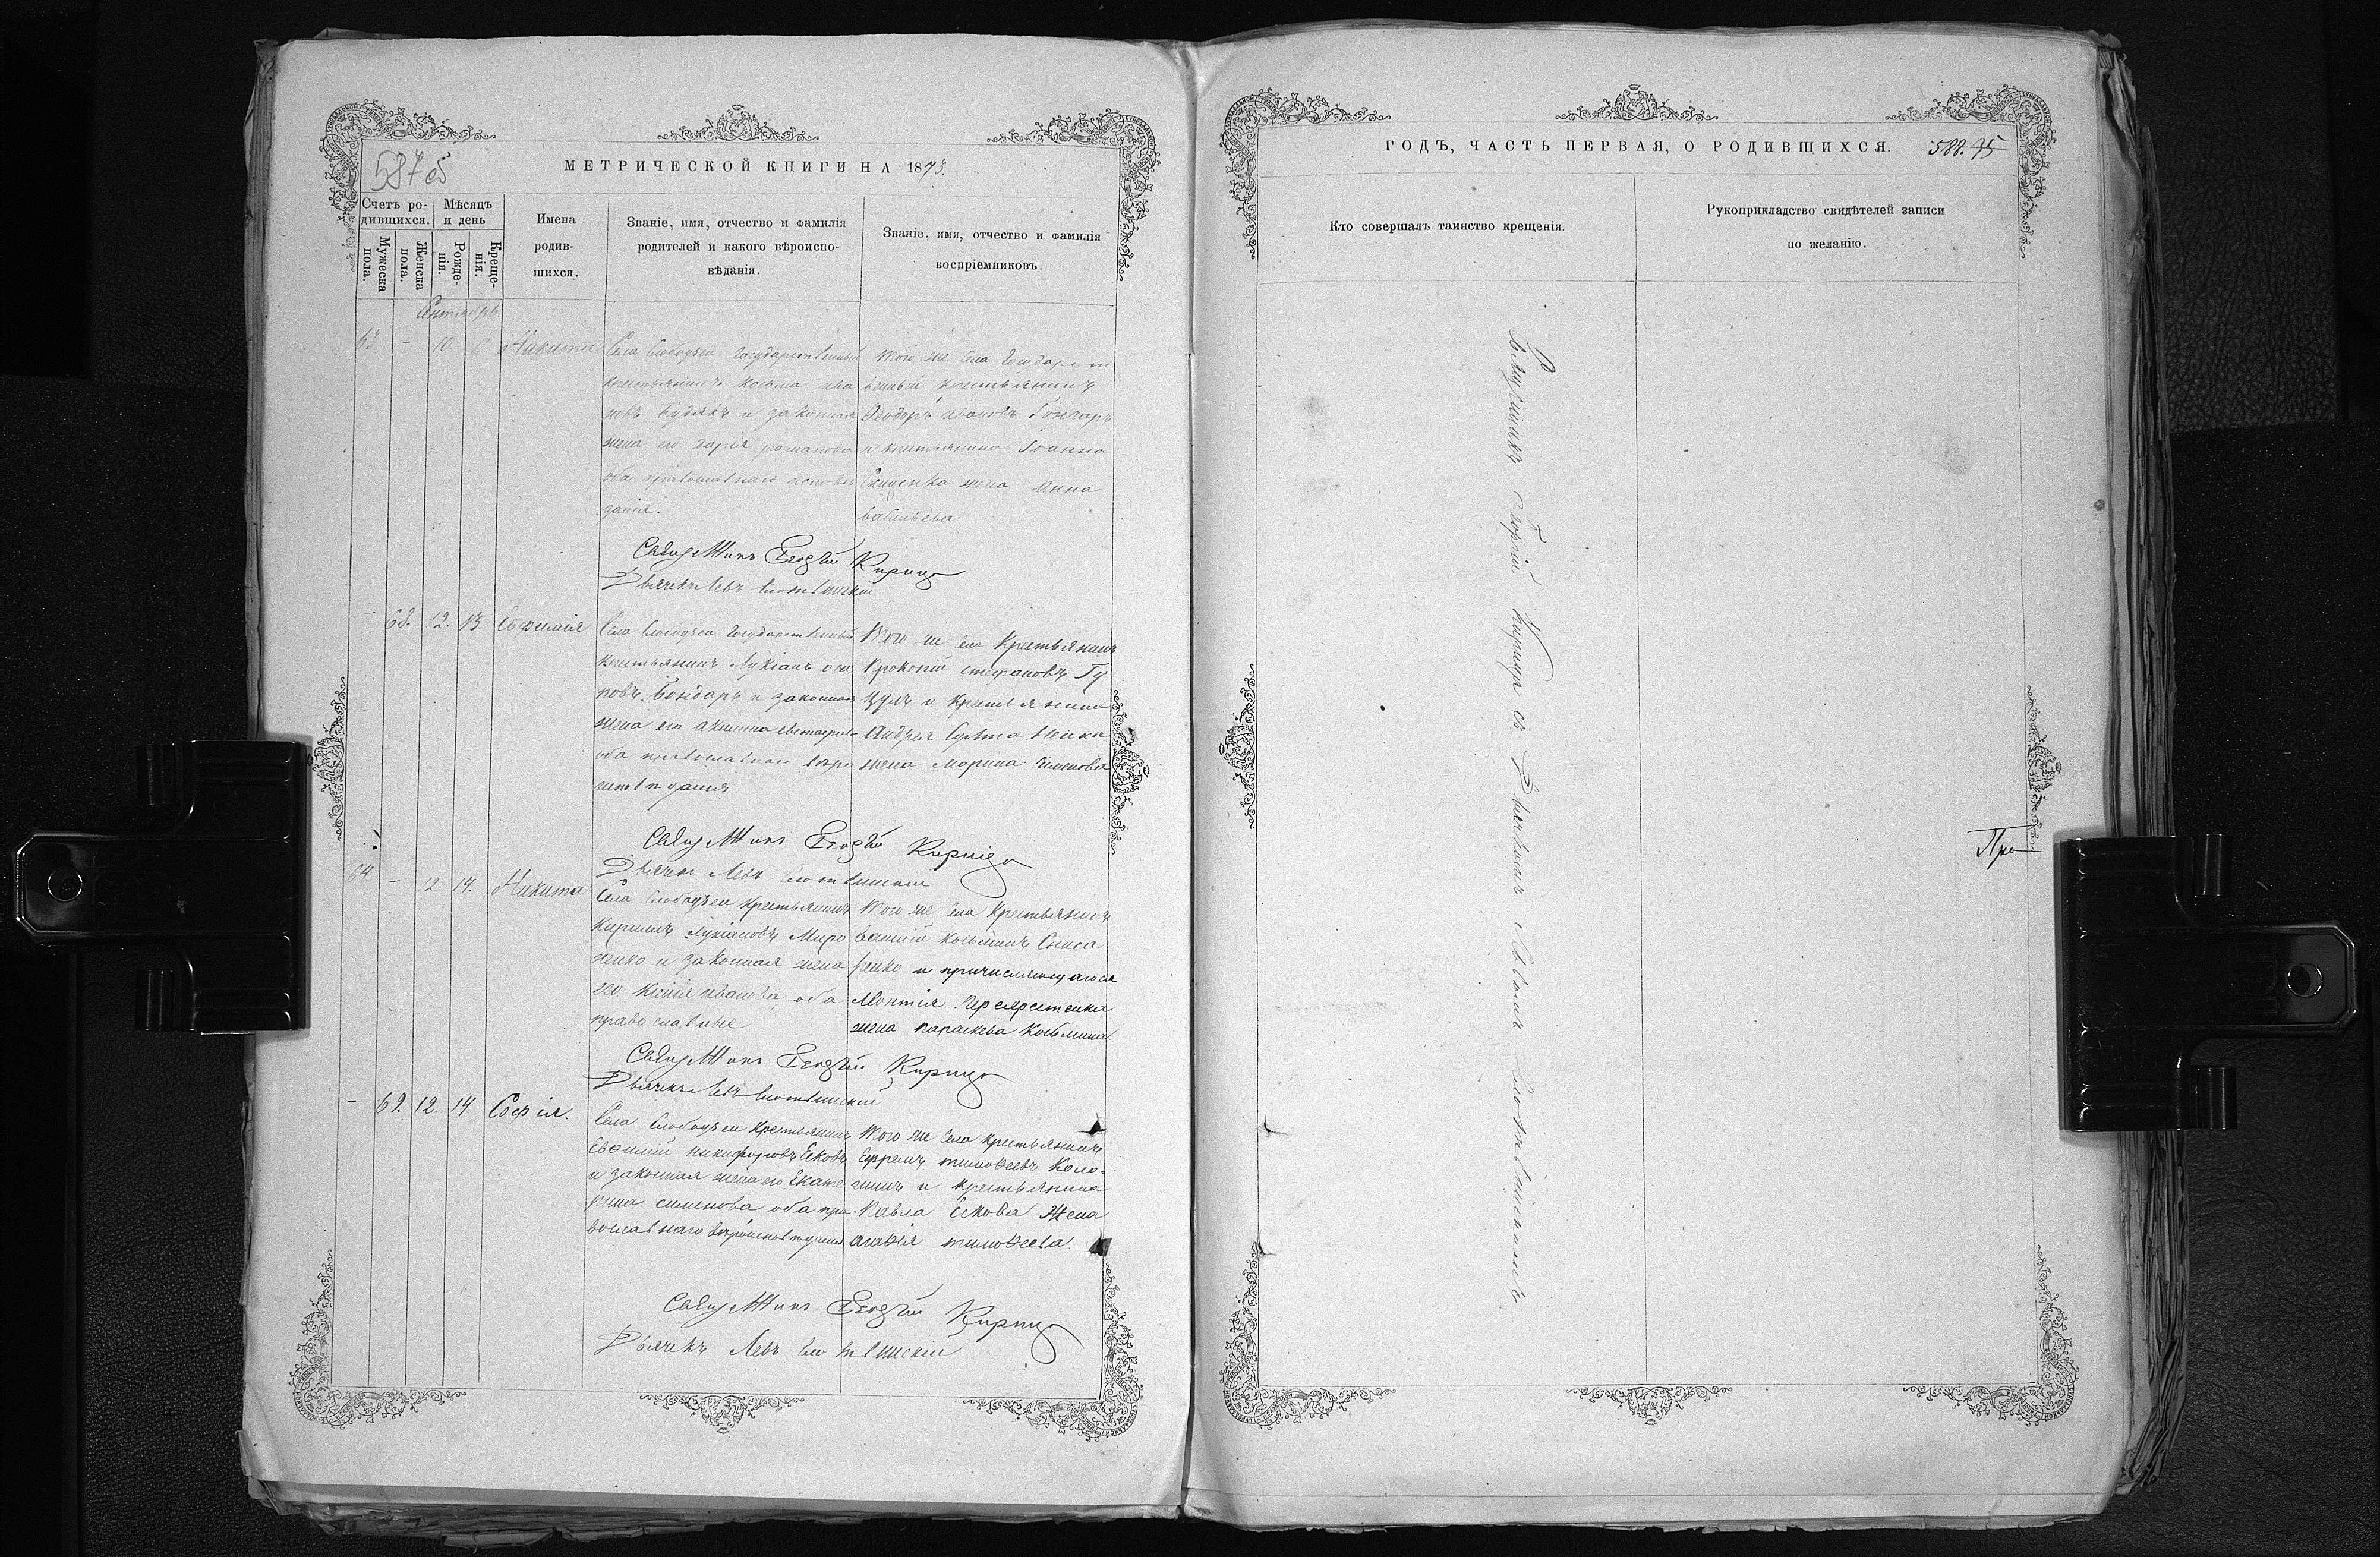 587 об
МЕТРИЧЕСКОЙ КНИГИ НА 1873.
Счетъ родившихся.
Мужеска пола.
Женска пола.
Мѣсяцъ и день
Рожденія.
Крещенія.
Имена родившихся.
Званіе, имя, отчество и фамилія
родителей и какого вѣроиспо-
вѣданія.
Званіе, имя, отчество и фамилія
воспріемниковъ.
Сентябрь
63. - 10. Никита
Села Слободзеи государственный
крестьянинъ Косьма ива
новъ Будякъ и законная
жена его дарія романова
оба православнаго исповѣ
данія.
того же села государст
венный крестьянинъ
Ѳеодоръ ивановъ Гончаръ
и крестьянина Іоанна
жена Анна
васильева
Священникъ Георгій Кирица
Дьячекъ Левъ
- 68. 12. 13. Евфимія
Села Слободзеи государственный
крестьянинъ Лукіанъ оси
повъ Бондарь и законная
жена его
оба православнаго вѣро
исповѣданія
Того же села Крестьянинъ
Прокопій стефановъ Гу
цулъ и крестьянина
Андрея
жена Марина
Священникъ Георгій Кирица
Дьячекъ Левъ
64. - 12 14. Никита
Села Слободзеи крестьянинъ
Кириллъ Лукіановъ Миро
ненко и законная жена
его Ксенія иванова оба
православные
Того же села Крестьянинъ
василій косьминъ
и причисляющагося
Леонтія
жена параскева Косьмина
Священникъ Георгій Кирица
Дьячекъ Левъ
- 69. 12. 14 Софія.
Села Слободзеи Крестьянинъ
Евѳимій никифоровъ Есковъ
и законная жена его Екате-
рина сименова оба пра-
вославнаго вѣроисповѣданія
Того же села крестьянинъ
Ефремъ тимоѳеевъ Коло-
и крестьянина
Павла Ескова Жена
агафія тимоѳеева
Священникъ Георгій Кирица
Дьячекъ Левъ
ГОДЪ, ЧАСТЬ ПЕРВАЯ, О РОДИВШИХСЯ.
588. 95
Кто совершалъ таинство крещенія.
Рукоприкладство свидѣтелей записи
по желанію.
Священникъ Георгій Кирица съ Дьячкомъ Львомъ
Пра